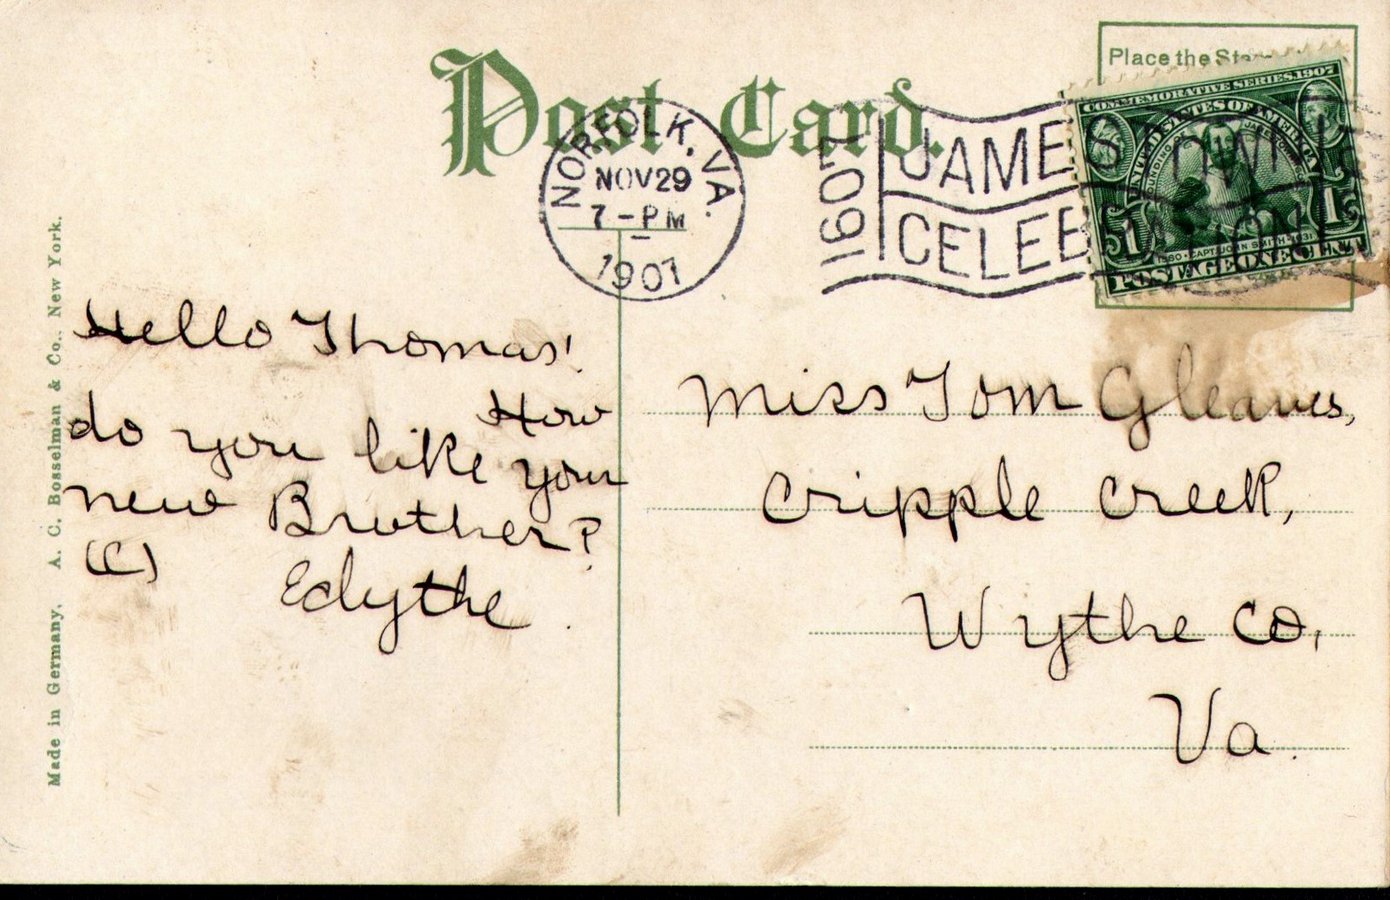 Post Card.
Place the
NORFOLK, VA.
NOV 29
7-PM
1907
1607
JAMES
CELEB
COMMEMORATIVE SERIES 1907
UNITED STATES OF AMERICA
FOUNDING OF JAMESTOWN
1 1
1580 · CAPT. JOHN SMITH · 1631
POSTAGE ONE CENT
Hello Thomas!
How
do you like your
new Brother?
(C)
Edythe.
Miss Tom Gleaves,
Cripple Creek,
Wythe Co,
Va.
Made in Germany. A. C. Bosselman & Co., New York.